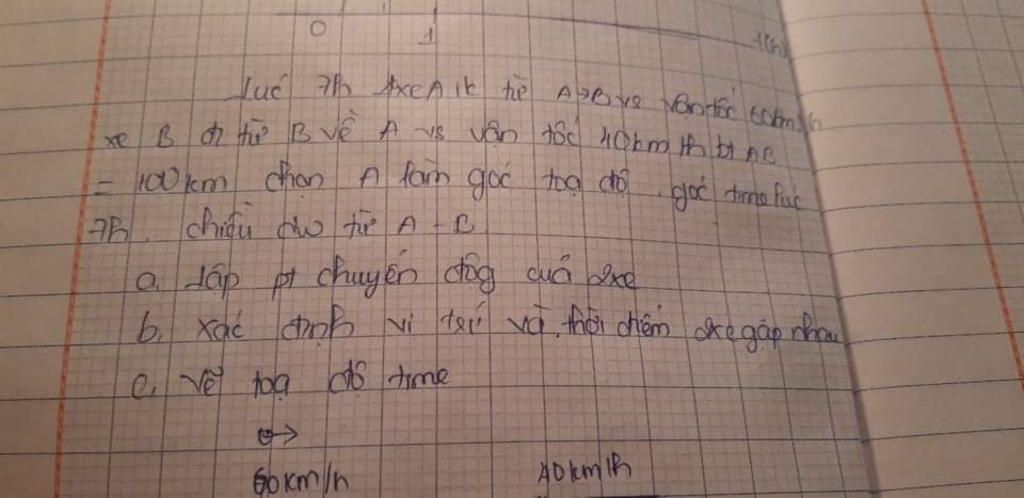 0 1 t(h)
Lúc 7h 1 xe A đt từ A→B vs vận tốc 60km/h
xe B đi từ B về A vs vân tốc 40km/h bt AB
= 100km chọn A làm gốc toạ độ. gốc time lúc
7h. chiều dw từ A - B
a. lập pt chuyển độg của 2xe
b. xác định vi trí và thời điểm 2xe gặp nhau
c. vẽ toạ độ time
60km/h 40km/h